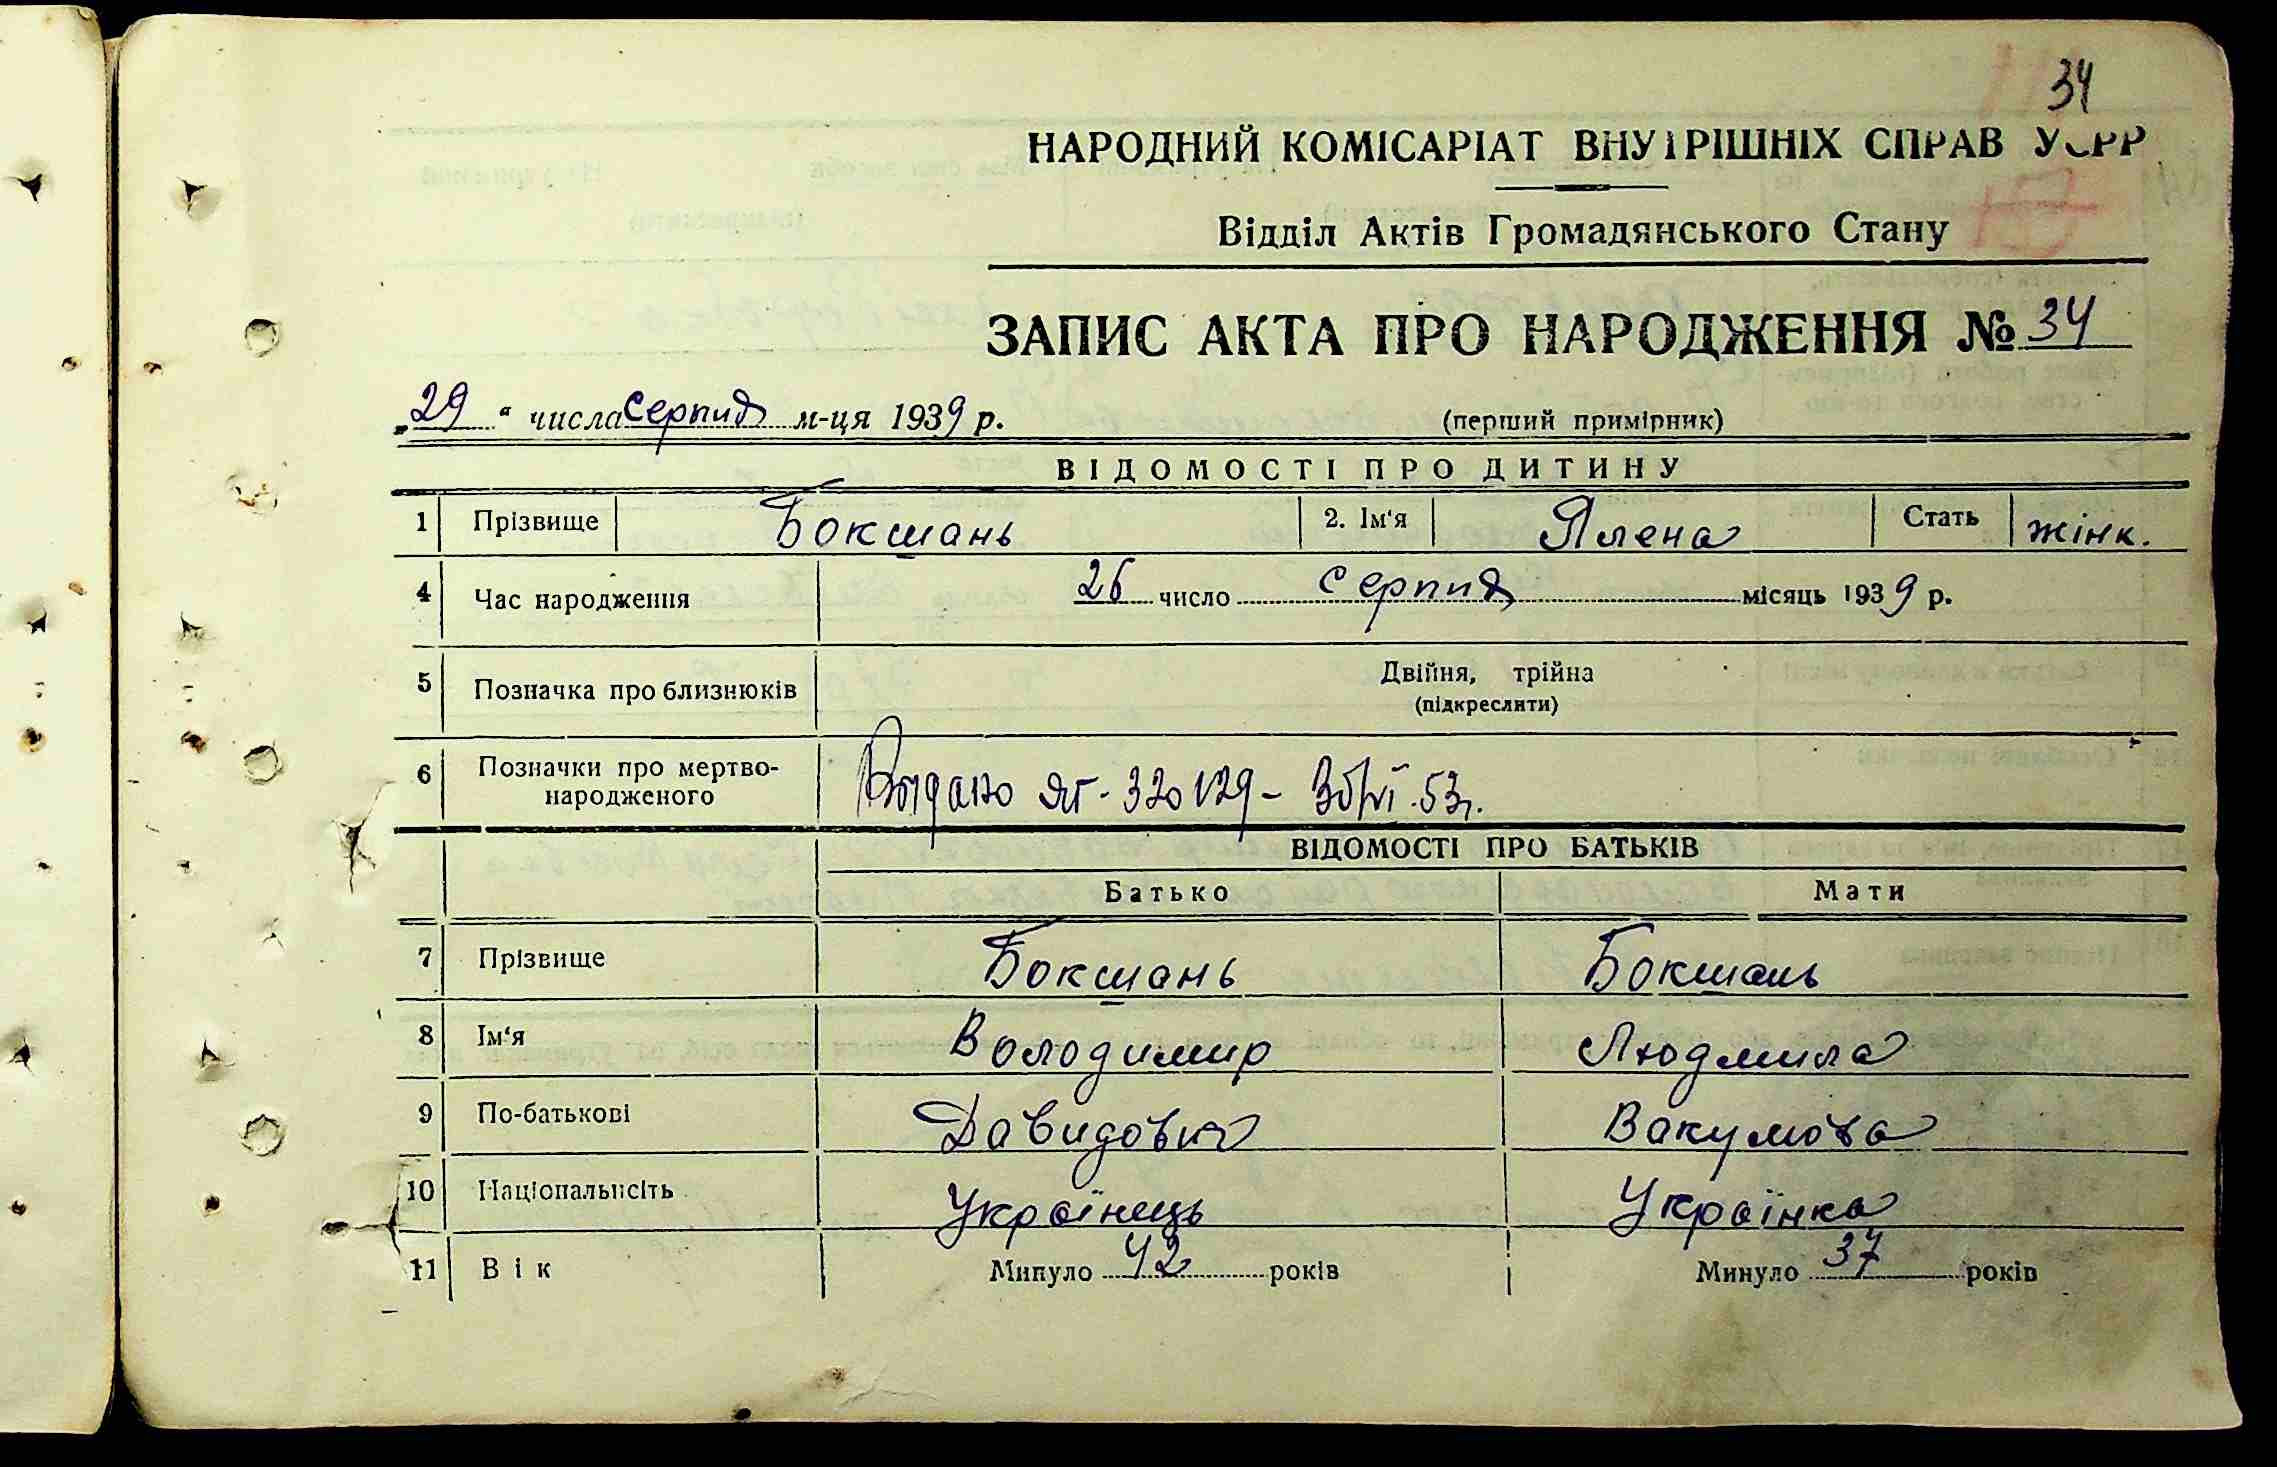 34
НАРОДНИЙ КОМІСАРІАТ ВНУТРІШНІХ СПРАВ УСРР
Відділ Актів Громадянського Стану
ЗАПИС АКТА ПРО НАРОДЖЕННЯ № 34
„29“ числа серпня м-ця 1939 р. (перший примірник)
ВІДОМОСТІ ПРО ДИТИНУ
1 Прізвище Бокшань 2. Ім'я Ялена Стать жінк.
4 Час народження 26 число серпня місяць 1939 р.
5 Позначка про близнюків Двійня, трійна
(підкреслити)
6 Позначки про мертво-
народженого
Выдано ЯГ-320129 - 53г.
ВІДОМОСТІ ПРО БАТЬКІВ
Батько Мати
7 Прізвище Бокшань Бокшань
8 Ім'я Володимир Людмила
9 По-батькові Давидович Вакумова
10 Національність Українець Українка
11 Вік Минуло 42 років Минуло 37 років